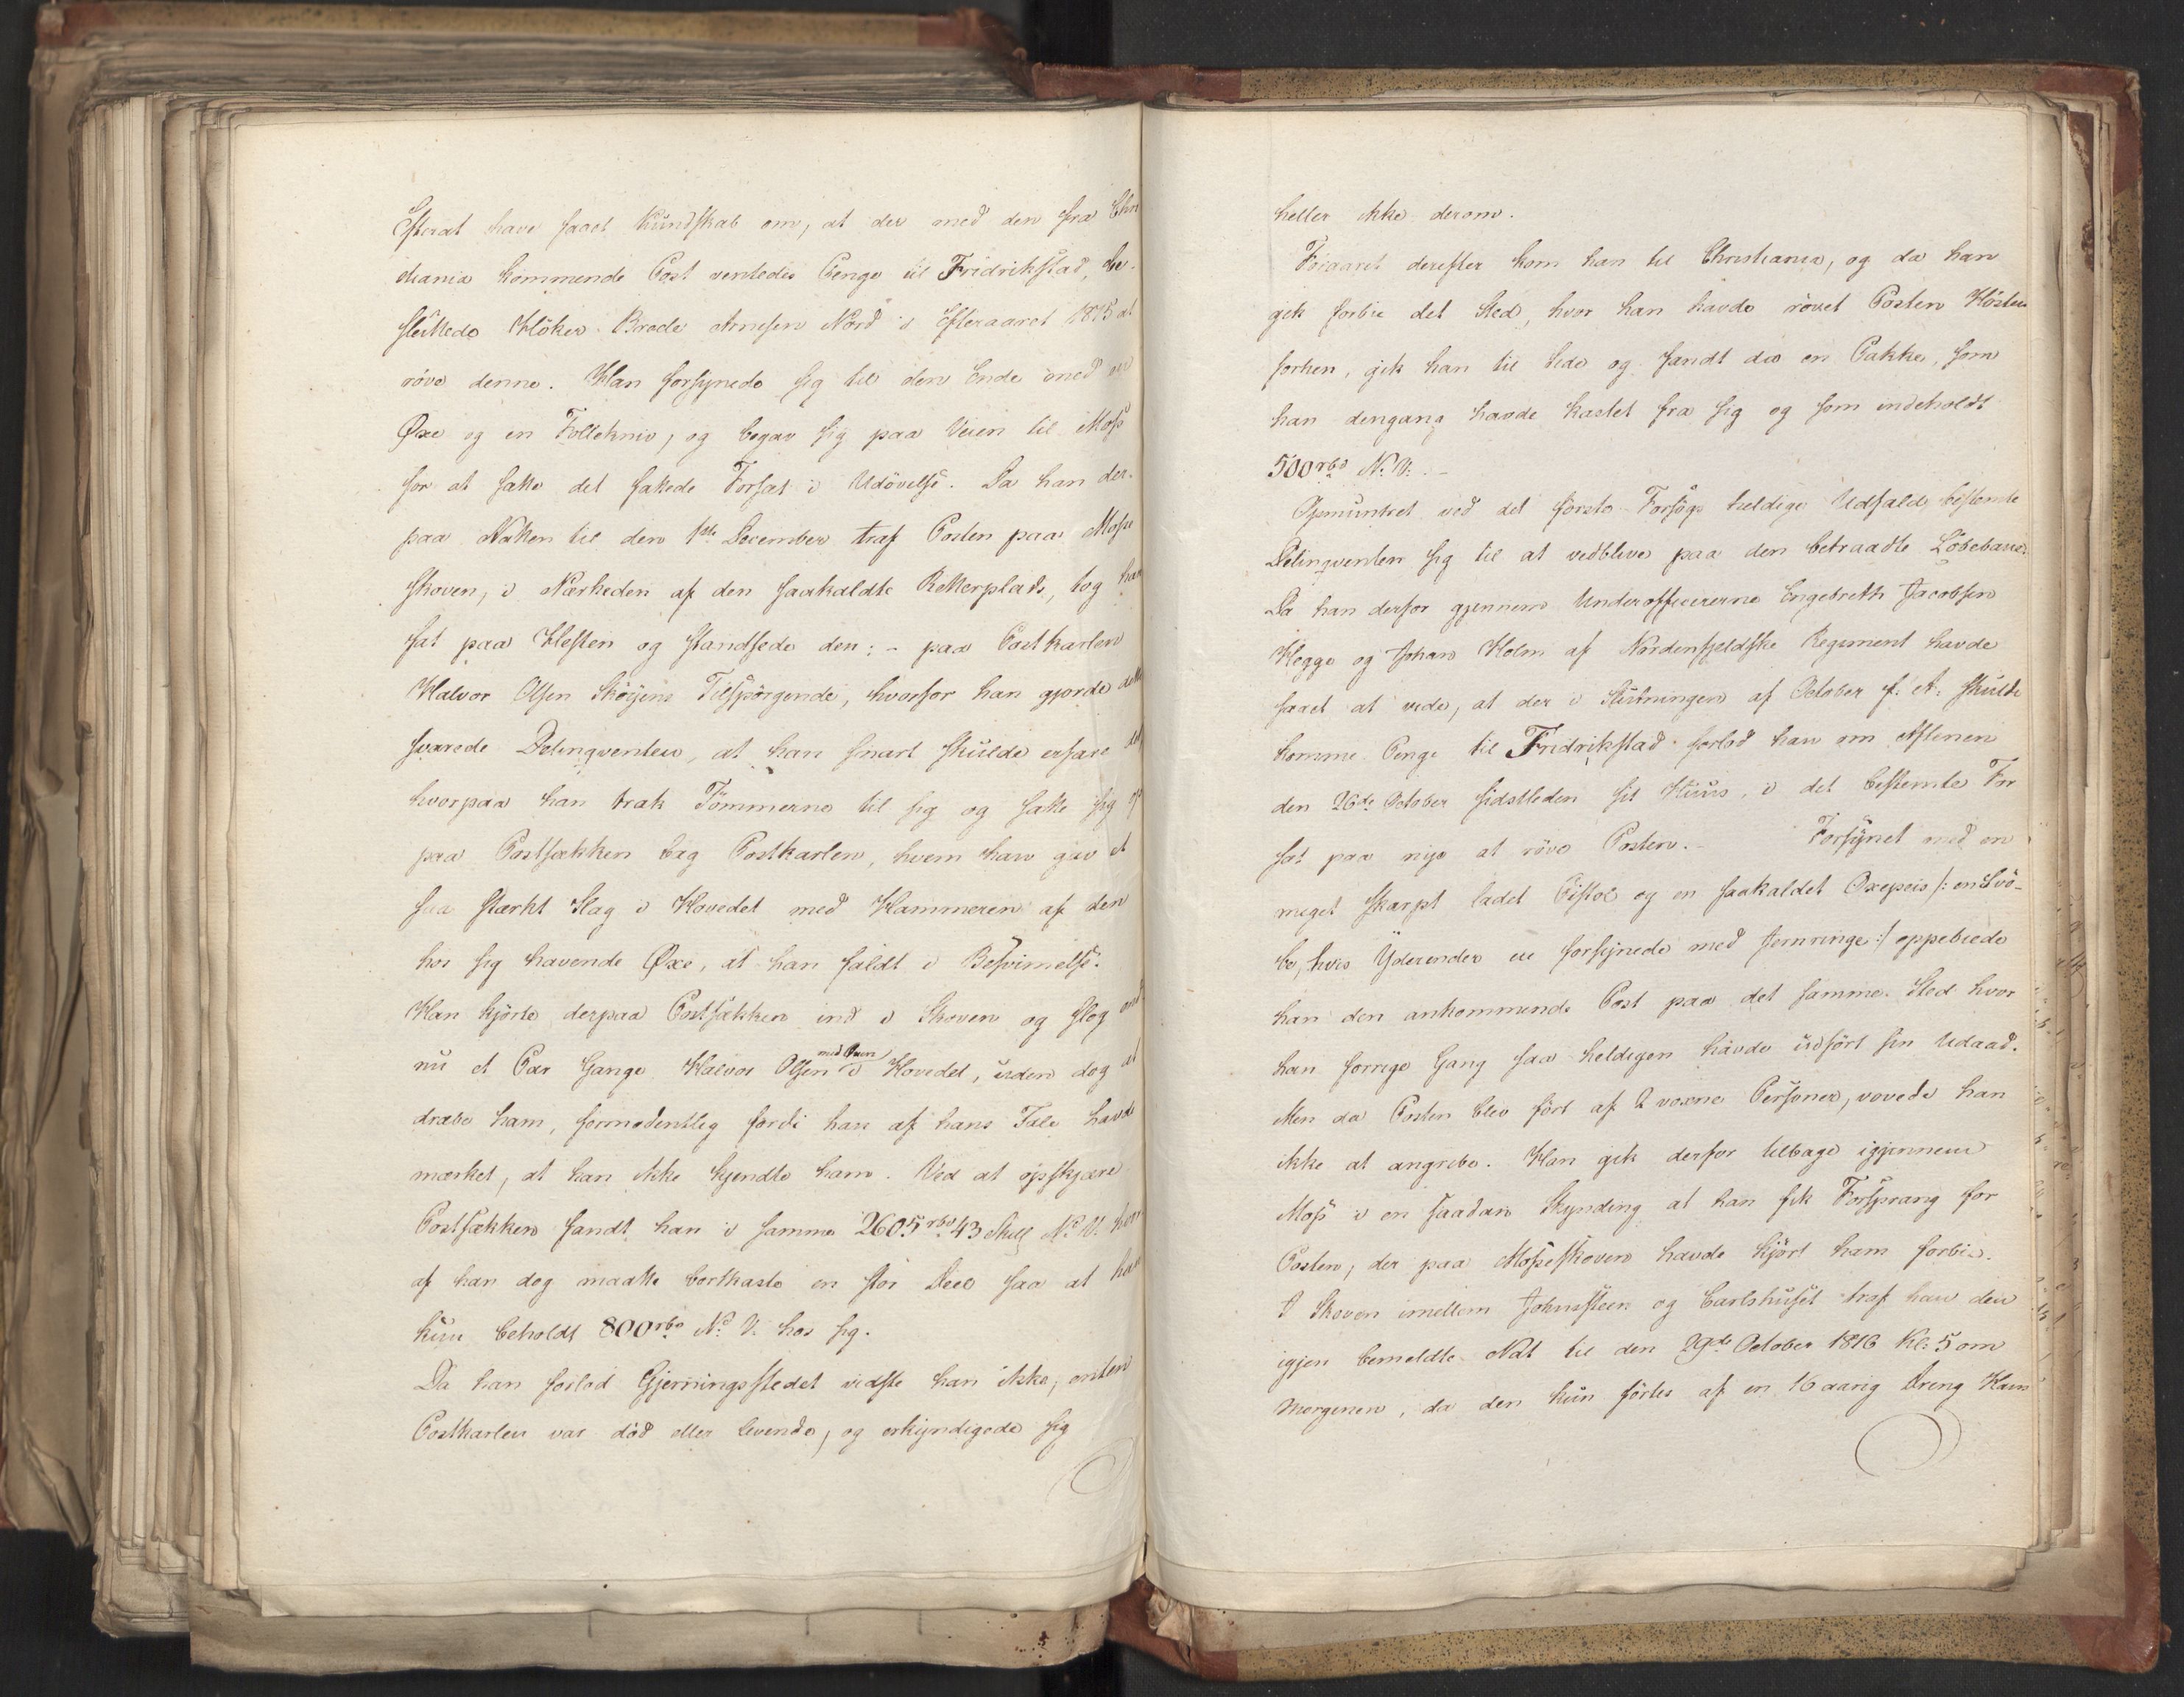 Efterat have faaet Kundskab om, at der med den fra Chri
stiania kommende Post ventedes Penge til Fridrikstad, be-
sluttede Höker Brede Arnesen Nord i Efteraaret 1815 at
röve denne. Han forsynede sig til den Ende med en
Øxe og en Follekniv, og begav sig paa Veien til Moss
for at sætte det fattede Forsæt i Udövelse. Da han der-
paa Natten til den 1ste December traf Posten paa Mosse
skoven, i Nærheden af den saakaldte Retterplads, tog han
fat paa Hesten og standsede den: - paa Postkarlen
Halvor Olsen Sköyens Tilspörgende, hvorfor han gjorde dette
svarede Delinqventen, at han snart skulde erfare det
hvorpaa han trak Tömmerne til sig og satte sig op
paa Postsækken bag Postkarlen, hvem han gav et
saa stærkt Slag i Hovedet med Hammeren af den
hos sig havende Øxe, at han faldt i Besvimelse.
Han kjörte derpaa Postsækken ind i Skoven og slog end
nu et Par Gange Halvor Olsen med Øxen i Hovedet, uden dog at
dræbe ham, formodentlig fordi han af hans Tale havde
mærket, at han ikke kjendte ham. Ved at opskjære
Postsækken fandt han i samme 2605 rbd 43 Skill N. V. hvor
af han dog maatte bortkaste en stor Deel saa at han
kun beholdt 800 rbd N. V. hos sig.
Da han forlod Gjerningsstedet vidste han ikke, enten
Postkarlen var död eller levende, og erkyndigede sig
heller ikke derom.
Foraaret derefter kom han til Christiania, og da han
gik forbie det Sted, hvor han havde rövet Posten Hösten
forhen, gik han til Side og fandt der en Pakke, som
han dengang havde kastet fra sig og som indeholdt
500 rbd N. V. -
Opmuntret ved det förste Forsögs heldige Udfald, bestemte
Delinqventen sig til at vedblive paa den betraadte Löbebane.
Da han derfor gjennem Underofficererne Engebreth Jacobsen
Hegge og Johan Holm af Nordenfjeldske Regiment havde
faaet at vide, at der i Slutningen af October f. A. skulde
komme Penge til Fridrikstad forlod han om Aftenen
den 26de October sidstleden sit Huus, i det bestemte For
sæt paa nye at röve Posten. - Forsynet med en
meget skarpt ladet Pistol og en saakaldet Oxepeis /: en Svö-
be, hvis Yderender er forsynede med Jernringe :/ oppebiede
han den ankommende Post paa det samme Sted hvor
han forrige Gang saa heldigen havde udfört sin Udaad.
Men da Posten blev fört af 2 voxne Personer, vovede han
ikke at angribe. Han gik derfor tilbage igjennem
Moss i en saadan Skynding at han fik Forsprang for
Posten, der paa Mosseskoven havde kjört ham forbie.
I Skoven imellem Johnsteen og Carlshuset traf han den
igjen bemeldte Nat til den 29de October 1816 Kl: 5 om
Morgenen, da den kun förtes af en 16 aarig Dreng Hans